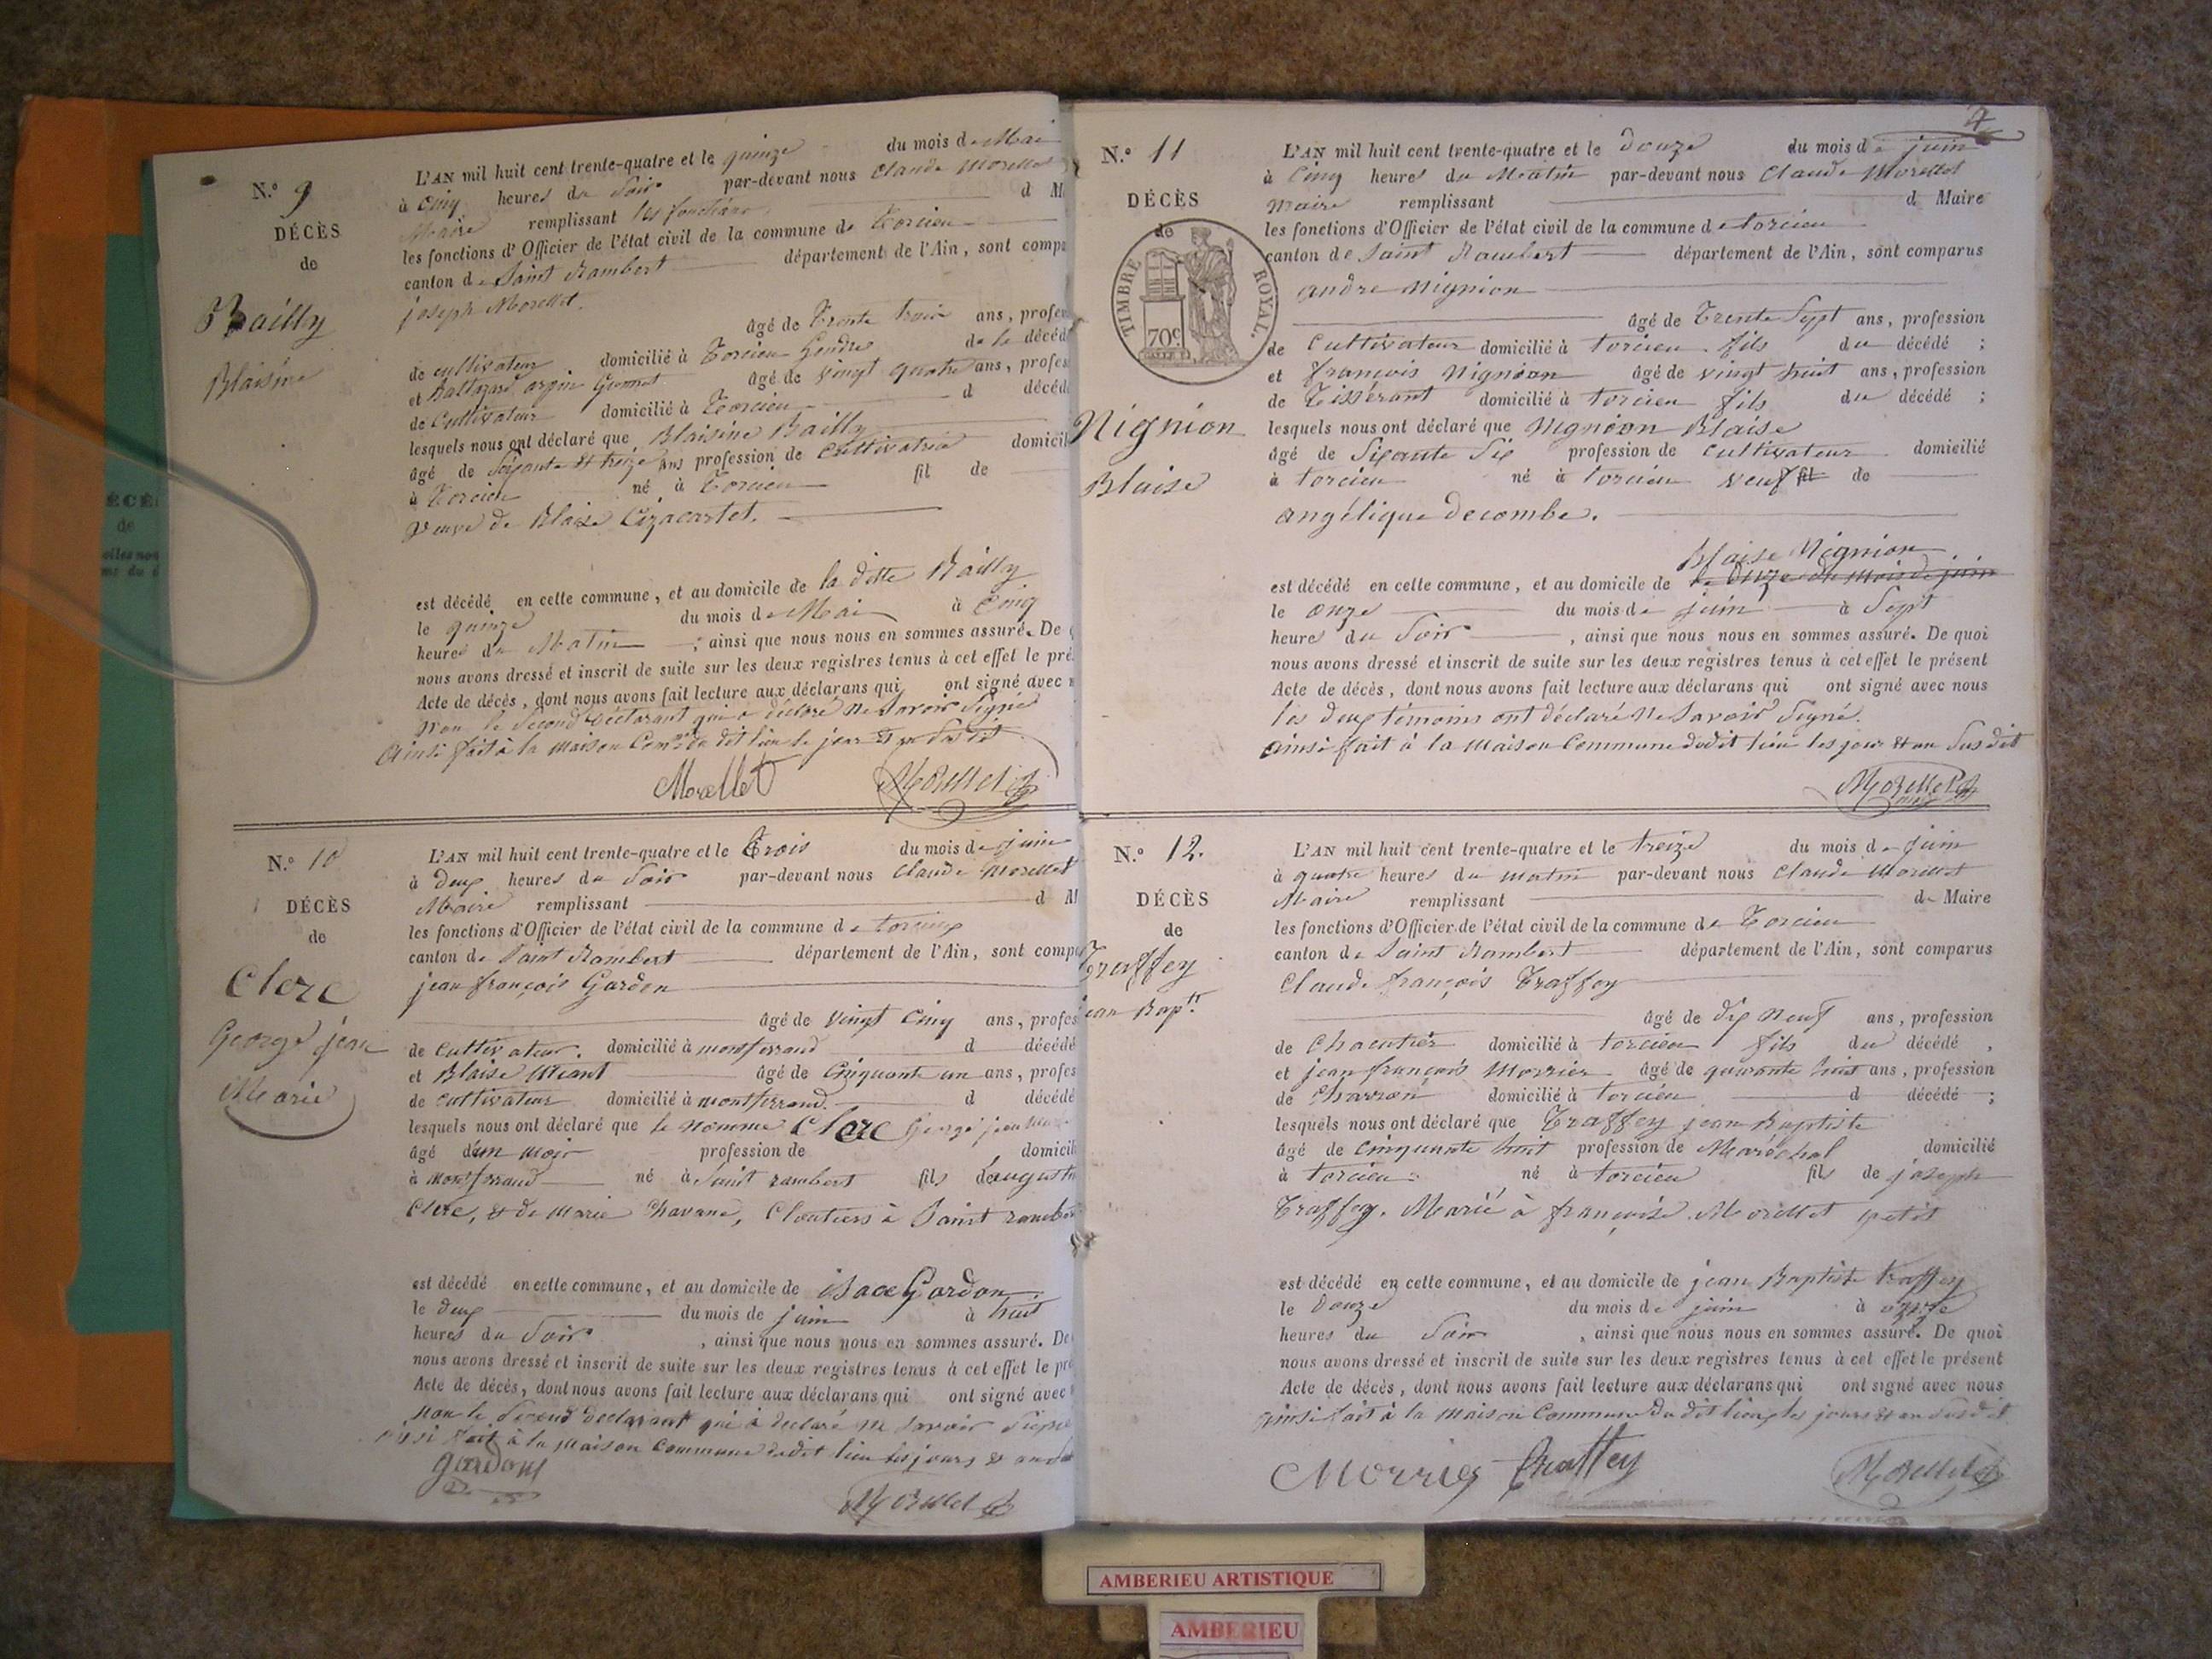 N.° 9
DÉCÈS
de
Bailly
Blaisine
L'AN mil huit cent trente-quatre et le quinze du mois de Mai
à Cinq heures du Soir par-devant nous Claude Morellet
Maire remplissant les fonctions d M
les fonctions d'Officier de l'état civil de la commune de Torcieu
canton de Saint Rambert département de l'Ain, sont comp
joseph Morellet.
âgé de Trente trois ans, profes
de cultivateur domicilié à Torcieu Gendre de le décéd
et Baltazard âgé de vingt quatre ans, profes
de Cultivateur domicilié à Torcieu d décéd
lesquels nous ont déclaré que Blaisine Bailly
âgé de Soixante et treize ans profession de Cultivatrice domicil
à Torcieu né à Torcieu fil de
veuve de Blaise
est décédé en cette commune, et au domicile de la ditte Bailly
le quinze du mois de Mai à Cinq
heures du Matin ; ainsi que nous nous en sommes assuré. De
nous avons dressé et inscrit de suite sur les deux registres tenus à cet effet le pré
Acte de décès, dont nous avons fait lecture aux déclarans qui ont signé avec
Non le Second déclarant qui a déclaré ne Savoir Signé
Ainsi fait à la Maison Com.ne du dit lieu le jour et an Susdit
Morellet Morellet
N.° 10
DÉCÈS
de
Clerc
George jean
Marie
L'AN mil huit cent trente-quatre et le Trois du mois de juin
à deux heures du Soir par-devant nous Claude Morellet
Maire remplissant d M
les fonctions d'Officier de l'état civil de la commune de torcieu
canton de Saint Rambert département de l'Ain, sont comp
jean françois Gardon
âgé de vingt Cinq ans, profes
de Cultivateur. domicilié à montferrand d décédé
et Blaise âgé de Cinquante un ans, profes
de Cultivateur domicilié à montferrand d décédé
lesquels nous ont déclaré que le nommé Clerc George jean Marie
âgé d'un mois profession de domicil
à montferrand né à Saint rambert fils de augustin
Clerc, et de Marie Chavane, Cloutiers à Saint rambert
est décédé en cette commune, et au domicile de isaac Gardon
le deux du mois de juin à huit
heures du Soir , ainsi que nous nous en sommes assuré. De
nous avons dressé et inscrit de suite sur les deux registres tenus à cet effet le pré
Acte de décès, dont nous avons fait lecture aux déclarans qui ont signé avec
Non le Second declarant qui à déclaré ne Savoir Signé
ainsi fait à la Maison Commune dudit lieu les jours & an
gardon
Morellet
4
N.° 11
DÉCÈS
de
TIMBRE ROYAL.
70c.
Nignion
Blaise
L'AN mil huit cent trente-quatre et le douze du mois de juin
à Cinq heures du Matin par-devant nous Claude Morellet
Maire remplissant d Maire
les fonctions d'Officier de l'état civil de la commune de torcieu
canton de Saint Rambert département de l'Ain, sont comparus
andre Nignion
âgé de Trente Sept ans, profession
de Cultivateur domicilié à torcieu fils du décédé ;
et françois Nignion âgé de vingt huit ans, profession
de Tisserant domicilié à torcieu fils du décédé ;
lesquels nous ont déclaré que Nignion Blaise
âgé de Sixante Six profession de Cultivateur domicilié
à torcieu né à torcieu veuf fil de
angélique decombe.
Blaise Nignion
est décédé en cette commune, et au domicile de le onze du mois de juin
le onze du mois de juin à Sept
heures du Soir , ainsi que nous nous en sommes assuré. De quoi
nous avons dressé et inscrit de suite sur les deux registres tenus à cet effet le présent
Acte de décès, dont nous avons fait lecture aux déclarans qui ont signé avec nous
les deux témoins ont déclaré ne Savoir Signé.
Ainsi fait à la Maison Commune dudit lieu les jour et an Susdit
Morellet
N.° 12.
DÉCÈS
de
Traffey
jean Bap.te
L'AN mil huit cent trente-quatre et le treize du mois de juin
à quatre heures du matin par-devant nous Claude Morellet
Maire remplissant de Maire
les fonctions d'Officier de l'état civil de la commune de Torcieu
canton de Saint Rambert département de l'Ain, sont comparus
Claude françois Traffey
âgé de dix neuf ans, profession
de Chacutier domicilié à torcieu fils du décédé ,
et jean françois Morrier âgé de quarante huit ans, profession
de Charron domicilié à torcieu d décédé ;
lesquels nous ont déclaré que Traffey jean Baptiste
âgé de Cinquante huit profession de Maréchal domicilié
à torcieu né à torcieu fil de joseph
Traffey. Marié à françoise Morellet petit
est décédé en cette commune, et au domicile de jean Baptiste traffey
le douze du mois de juin à onze
heures du Soir , ainsi que nous nous en sommes assuré. De quoi
nous avons dressé et inscrit de suite sur les deux registres tenus à cet effet le présent
Acte de décès, dont nous avons fait lecture aux déclarans qui ont signé avec nous
ainsi fait à la Maison Commune du dit lieu les jours & an Susdit
Morrier Traffey Morellet
AMBERIEU ARTISTIQUE
AMBERIEU